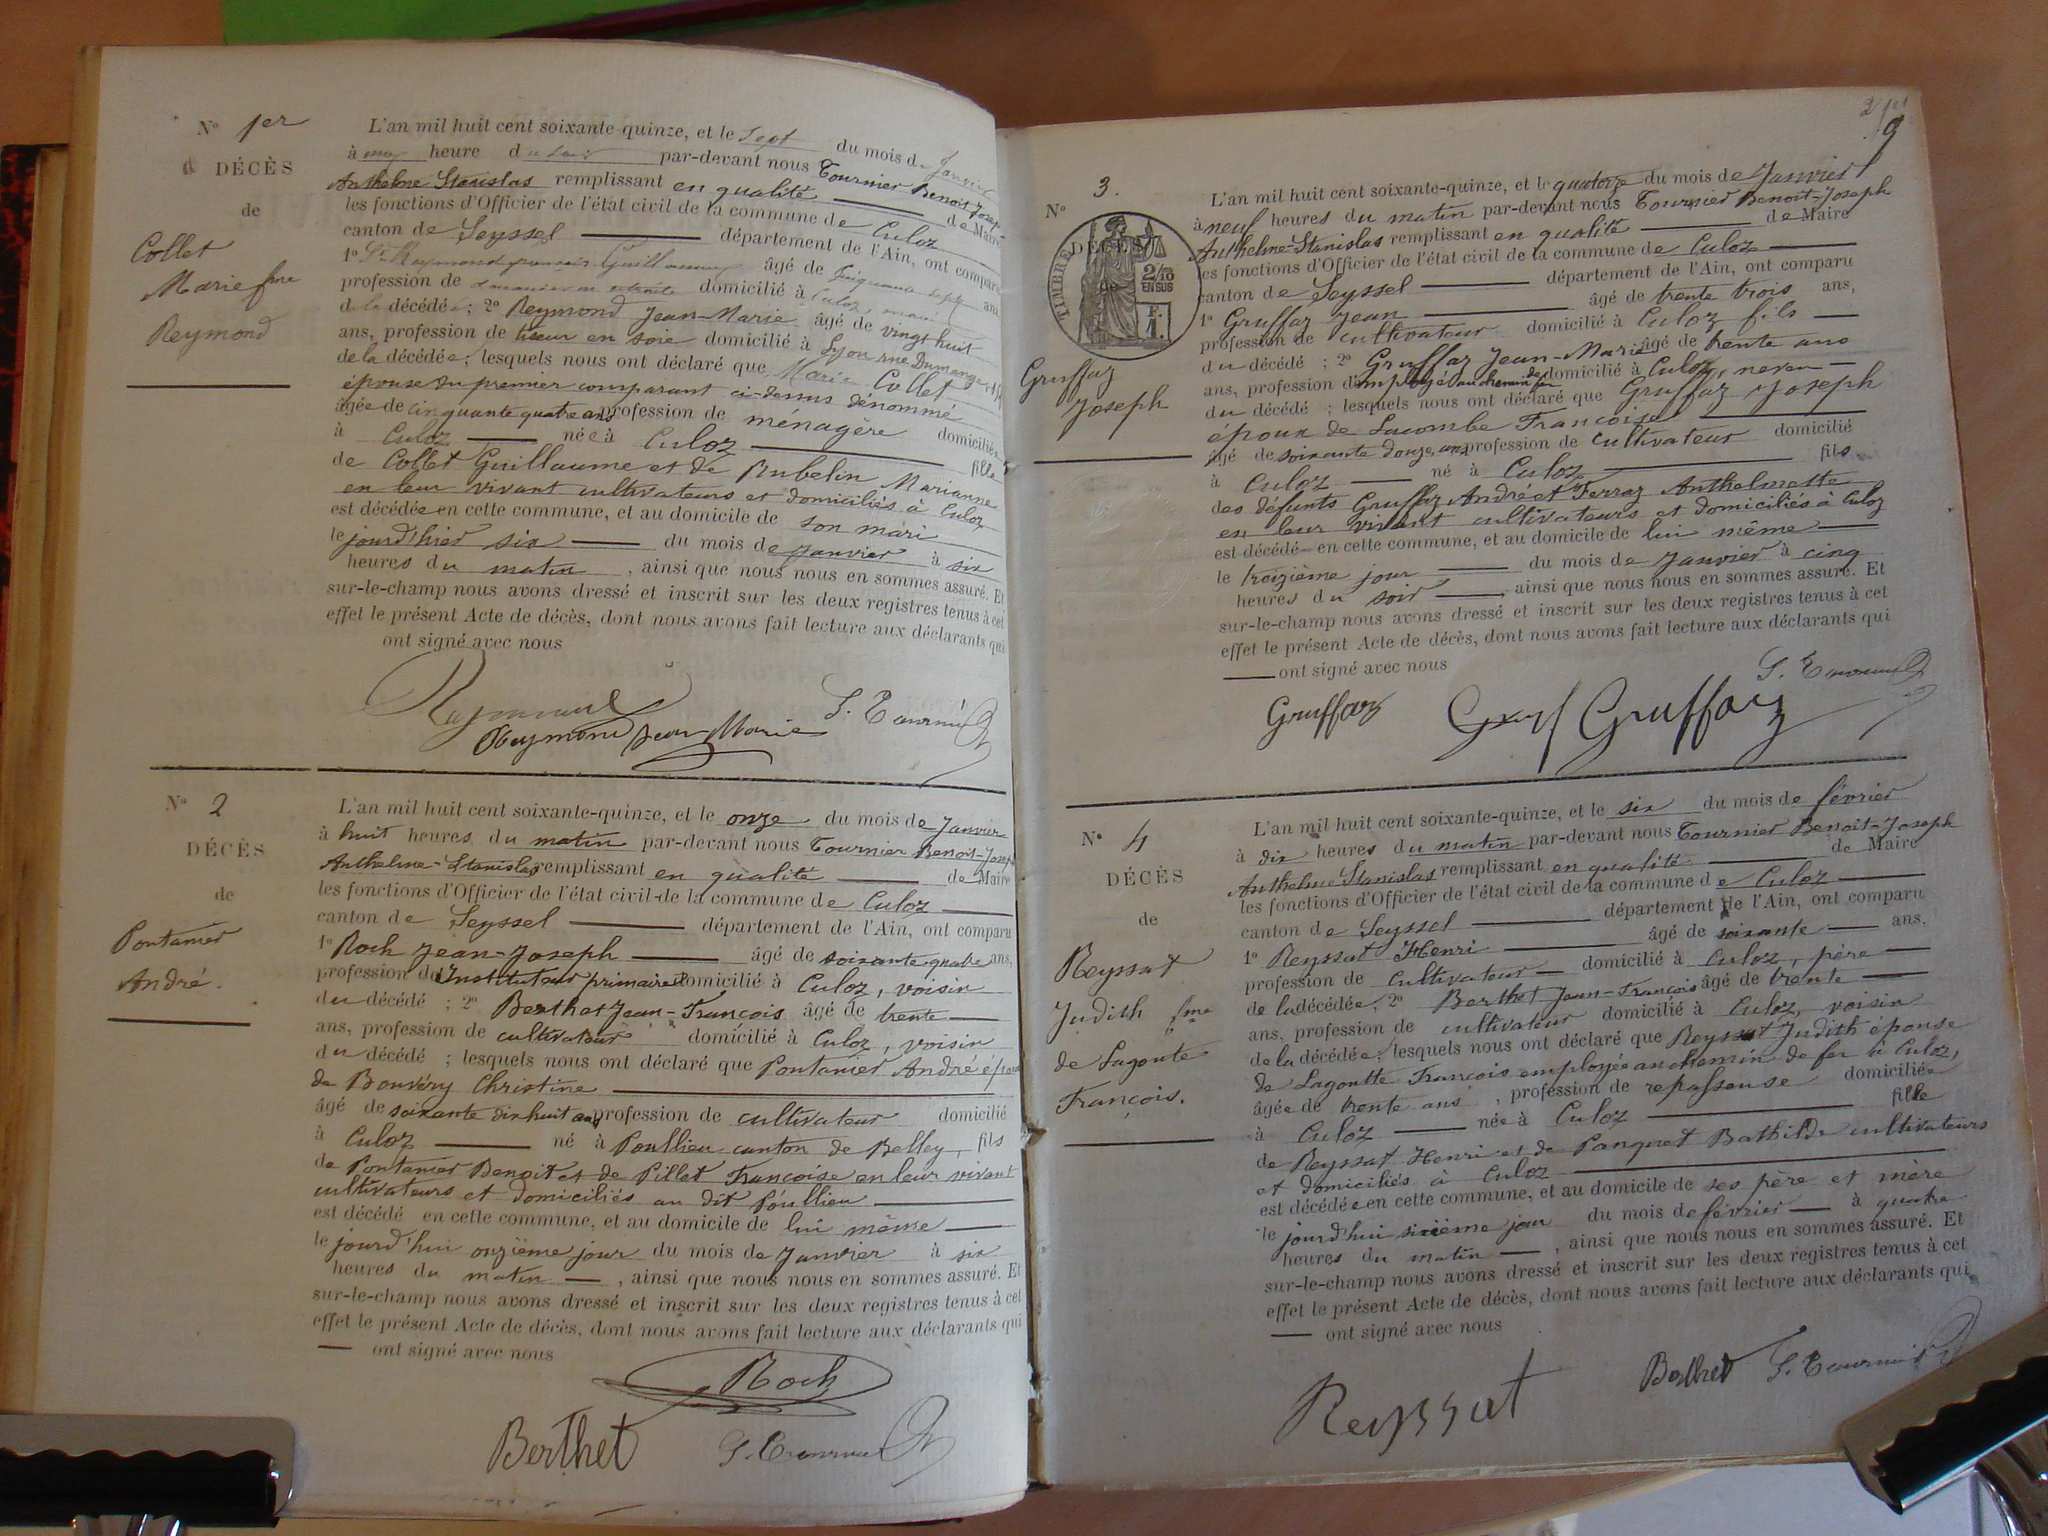 No 1er
DÉCÈS
de
Collet
Marie fme
Reymond
L'an mil huit cent soixante-quinze, et le sept du mois de Janvier
à une heure du soir par-devant nous Tournier Benoit-Joseph
Anthelme Stanislas remplissant en qualité de Maire
les fonctions d'Officier de l'état civil de la commune de Culoz
canton de Seyssel département de l'Ain, ont comparu
1o Raymond Guillaume âgé de cinquante sept ans
profession de domicilié à Culoz mari
de la décédée ; 2o Reymond Jean-Marie âgé de vingt huit
ans, profession de tisseur en soie domicilié à Lyon rue
de la décédée ; lesquels nous ont déclaré que Marie Collet
épouse du premier comparant ci-dessus dénommé
âgée de cinquante quatre ans profession de ménagère domiciliée
à Culoz née à Culoz fille
de Collet Guillaume et de Rubelin Marianne
en leur vivant cultivateurs et domiciliés à Culoz
est décédée en cette commune, et au domicile de son mari
le jourd'hier six du mois de janvier à six
heures du matin , ainsi que nous nous en sommes assuré. Et
sur-le-champ nous avons dressé et inscrit sur les deux registres tenus à cet
effet le présent Acte de décès, dont nous avons fait lecture aux déclarants qui
ont signé avec nous
Reymond Jean Marie S. Tournier
No 2
DÉCÈS
de
Pontanier
André.
L'an mil huit cent soixante-quinze, et le onze du mois de Janvier
à huit heures du matin par-devant nous Tournier Benoit-Joseph
Anthelme-Stanislas remplissant en qualité de Maire
les fonctions d'Officier de l'état civil de la commune de Culoz
canton de Seyssel département de l'Ain, ont comparu
1o Roch Jean-Joseph âgé de soixante-quatre ans,
profession d'Instituteur primaire domicilié à Culoz, voisin
du décédé ; 2o Berthet Jean-François âgé de trente
ans, profession de cultivateur domicilié à Culoz, voisin
du décédé ; lesquels nous ont déclaré que Pontanier André époux
de Bouvéry Christine
âgé de soixante dix huit ans profession de cultivateur domicilié
à Culoz né à Poullieu canton de Belley, fils
de Pontanier Benoit et de Pillet Françoise en leur vivant
cultivateurs et domiciliés au dit Poullieu
est décédé en cette commune, et au domicile de lui même
le jourd'hui onzième jour du mois de Janvier à six
heures du matin , ainsi que nous nous en sommes assuré. Et
sur-le-champ nous avons dressé et inscrit sur les deux registres tenus à cet
effet le présent Acte de décès, dont nous avons fait lecture aux déclarants qui
ont signé avec nous
Roch
Berthet S. Tournier
9
No 3.
DÉCÈS
de
TIMBRE
2/10
EN SUS
Gruffaz
Joseph
L'an mil huit cent soixante-quinze, et le quatorze du mois de Janvier
à neuf heures du matin par-devant nous Tournier Benoit-Joseph
Anthelme-Stanislas remplissant en qualité de Maire
les fonctions d'Officier de l'état civil de la commune de Culoz
canton de Seyssel département de l'Ain, ont comparu
1o Gruffaz Jean âgé de trente trois ans,
profession de cultivateur domicilié à Culoz fils
du décédé ; 2o Gruffaz Jean-Marie âgé de trente ans
ans, profession d'employé au chemin de fer domicilié à Culoz, neveu
du décédé ; lesquels nous ont déclaré que Gruffaz Joseph
époux de Lacombe Françoise
âgé de soixante douze ans profession de cultivateur domicilié
à Culoz né à Culoz fils
des défunts Gruffaz André et Ferraz Anthelmette
en leur vivant cultivateurs et domiciliés à Culoz
est décédé en cette commune, et au domicile de lui même
le treizième jour du mois de Janvier à cinq
heures du soir ainsi que nous nous en sommes assuré. Et
sur-le-champ nous avons dressé et inscrit sur les deux registres tenus à cet
effet le présent Acte de décès, dont nous avons fait lecture aux déclarants qui
ont signé avec nous
Gruffaz Gruffaz S. Tournier
No 4
DÉCÈS
de
Reyssat
Judith fme
de Lagoute
François.
L'an mil huit cent soixante-quinze, et le six du mois de février
à dix heures du matin par-devant nous Tournier Benoit-Joseph
Anthelme Stanislas remplissant en qualité de Maire
les fonctions d'Officier de l'état civil de la commune de Culoz
canton de Seyssel département de l'Ain, ont comparu
1o Reyssat Henri âgé de soixante ans.
profession de cultivateur domicilié à Culoz, père
de la décédée ; 2o Berthet Jean-François âgé de trente
ans, profession de cultivateur domicilié à Culoz, voisin
de la décédée ; lesquels nous ont déclaré que Reyssat Judith épouse
de Lagoutte François employée au chemin de fer à Culoz,
âgée de trente ans , profession de repasseuse domiciliée
à Culoz née à Culoz fille
de Reyssat Henri et de Panquet Bathilde cultivateurs
et domiciliés à Culoz
est décédée en cette commune, et au domicile de ses père et mère
le jourd'hui sixième jour du mois de février à quatre
heures du matin , ainsi que nous nous en sommes assuré. Et
sur-le-champ nous avons dressé et inscrit sur les deux registres tenus à cet
effet le présent Acte de décès, dont nous avons fait lecture aux déclarants qui
ont signé avec nous
Reyssat Berthet S. Tournier